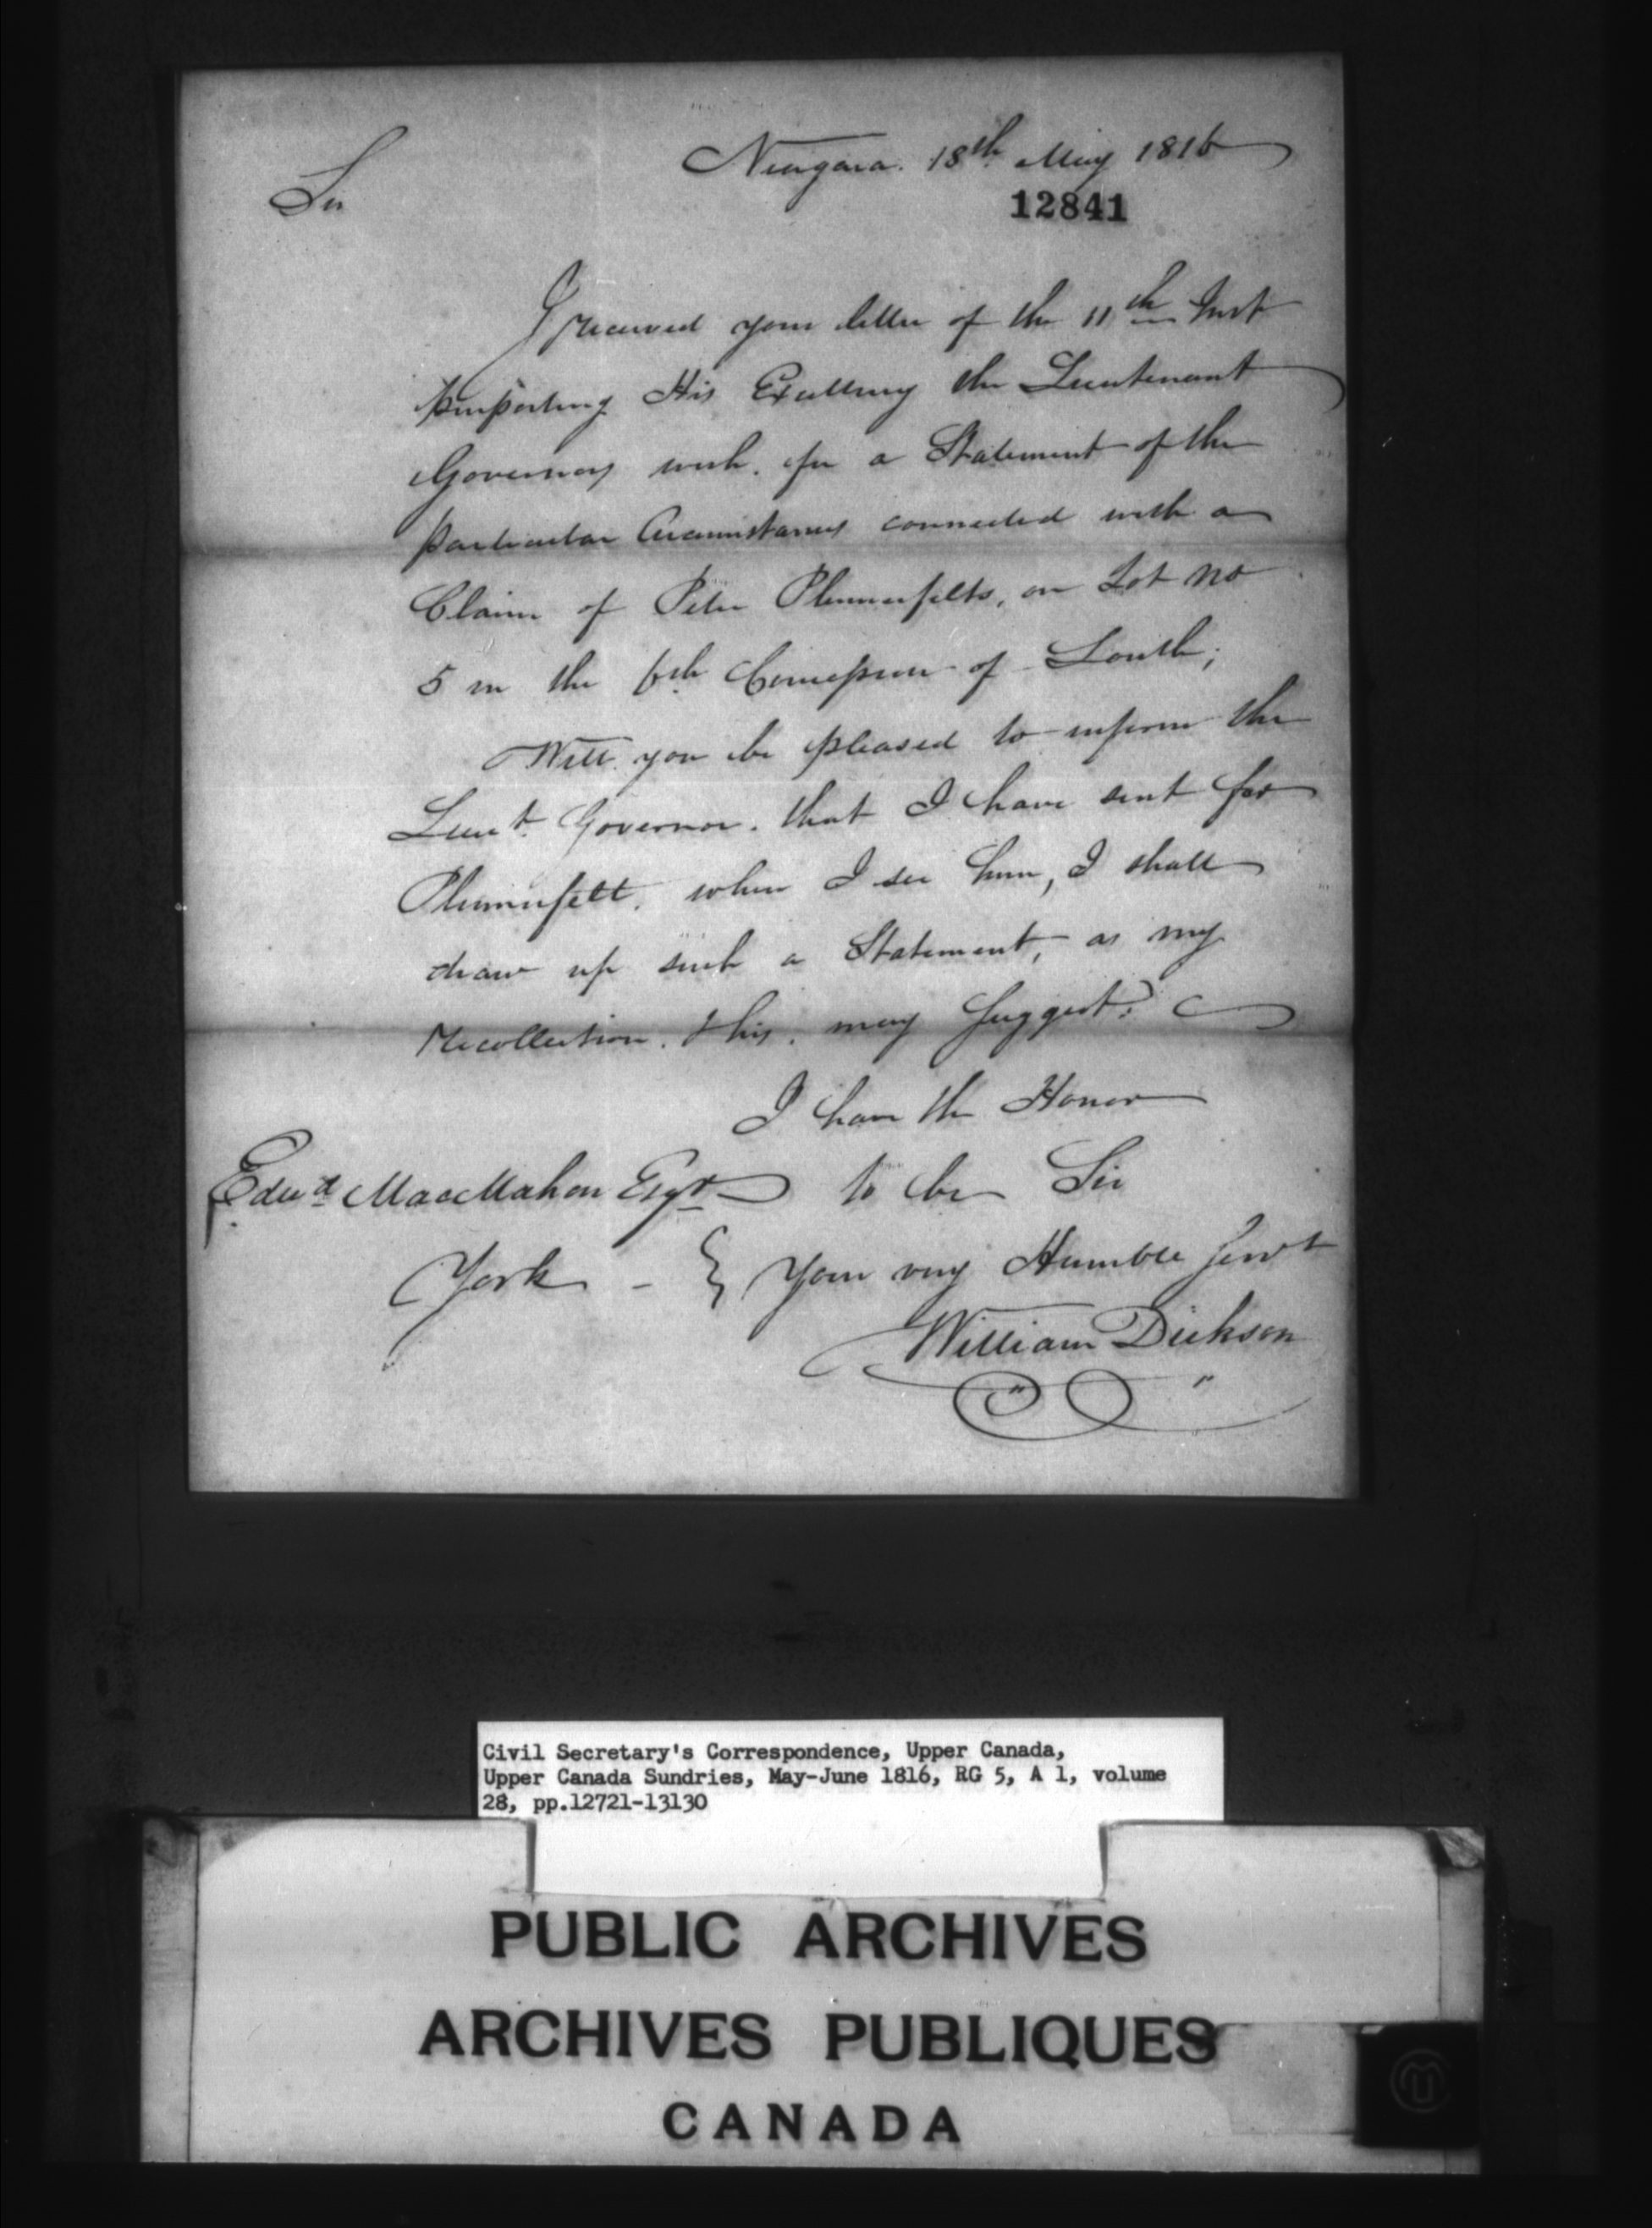 Niagara. 18th May 1816
Sir
12841
I received your letter of the 11th Inst
purporting His Excellency the Lieutenant
Governors wish. for a Statement of the
particular Circumstances connected with a
Claim of Peter Plumerfelts, on Lot no
5 in the 6th Concession of Louth;
Will you be pleased to inform the
Lieut. Governor. that I have sent for
Plumerfelt. when I see him, I shall
draw up such a Statement, as my
recollection. & his. may suggest.
I have the Honor
Edwd MacMahon Esqr to be Sir
York - } Your very Humble Servt
William Dickson
Civil Secretary's Correspondence, Upper Canada,
Upper Canada Sundries, May-June 1816, RG 5, A 1, volume
28, pp.12721-13130
PUBLIC ARCHIVES
ARCHIVES PUBLIQUES
CANADA